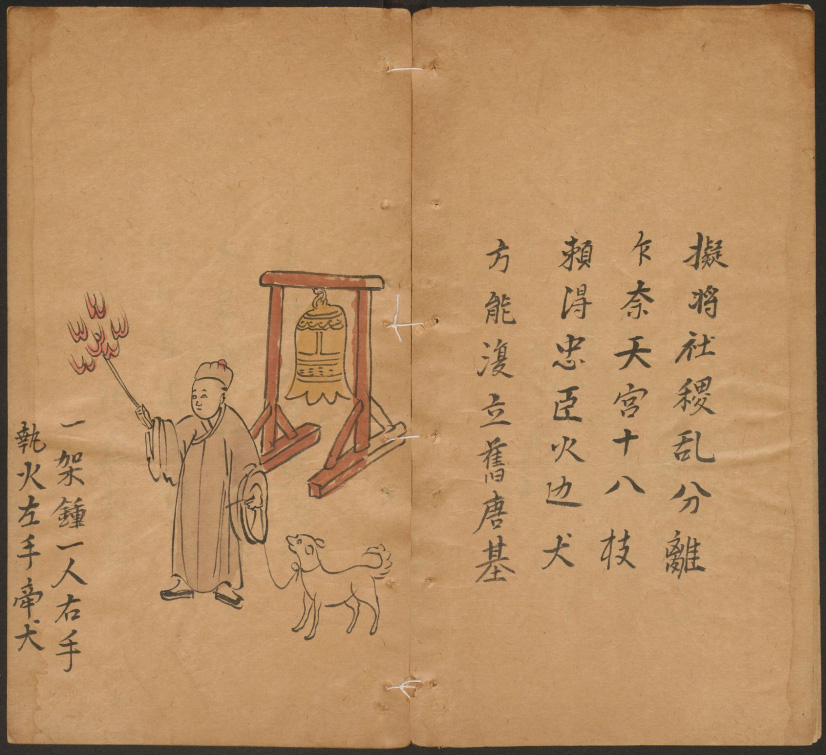 擬将社稷乱分離
乍奈天宮十八枝
賴得忠臣火边犬
方能復立舊唐基
一架鍾一人右手
執火左手牵犬